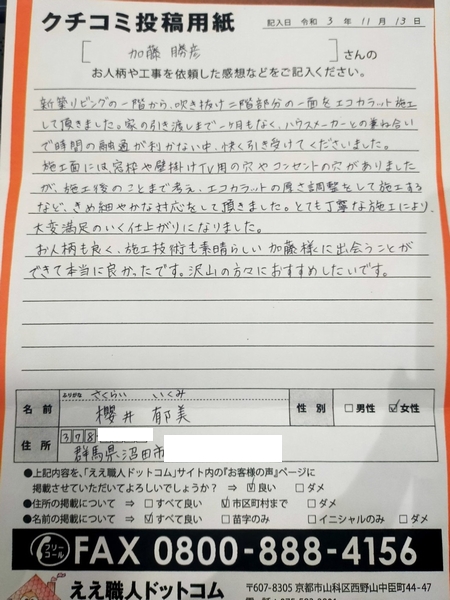 クチコミ投稿用紙 記入日 令和 3 年 11 月 13 日
加藤 勝彦 さんの
お人柄や工事を依頼した感想などをご記入ください。
新築リビングの一階から、吹き抜け二階部分の一面をエコカラット施工
して頂きました。家の引き渡しまで一ヶ月もなく、ハウスメーカーとの兼ね合い
で時間の融通が利かない中、快く引き受けてくださいました。
施工面には、窓枠や壁掛けTV用の穴やコンセントの穴がありました
が、施工後のことまで考え、エコカラットの厚さ調整をして施工する
など、きめ細やかな対応をして頂きました。とても丁寧な施工により、
大変満足のいく仕上がりになりました。
お人柄も良く、施工技術も素晴らしい加藤様に出会うことが
できて本当に良かったです。沢山の方々におすすめしたいです。
ふりがな さくらい いくみ
名前 櫻井 郁美 性別 □男性 ☑女性
住所 378
群馬県沼田市
●上記内容を、「ええ職人ドットコム」サイト内の『お客様の声』ページに
掲載させていただいてよろしいでしょうか? ⇒ ☑良い □ダメ
●住所の掲載について ⇒ □すべて良い ☑市区町村まで □ダメ
●名前の掲載について ⇒ ☑すべて良い □苗字のみ □イニシャルのみ □ダメ
フリーコール FAX 0800-888-4156
ええ職人ドットコム 〒607-8305 京都市山科区西野山中臣町44-47